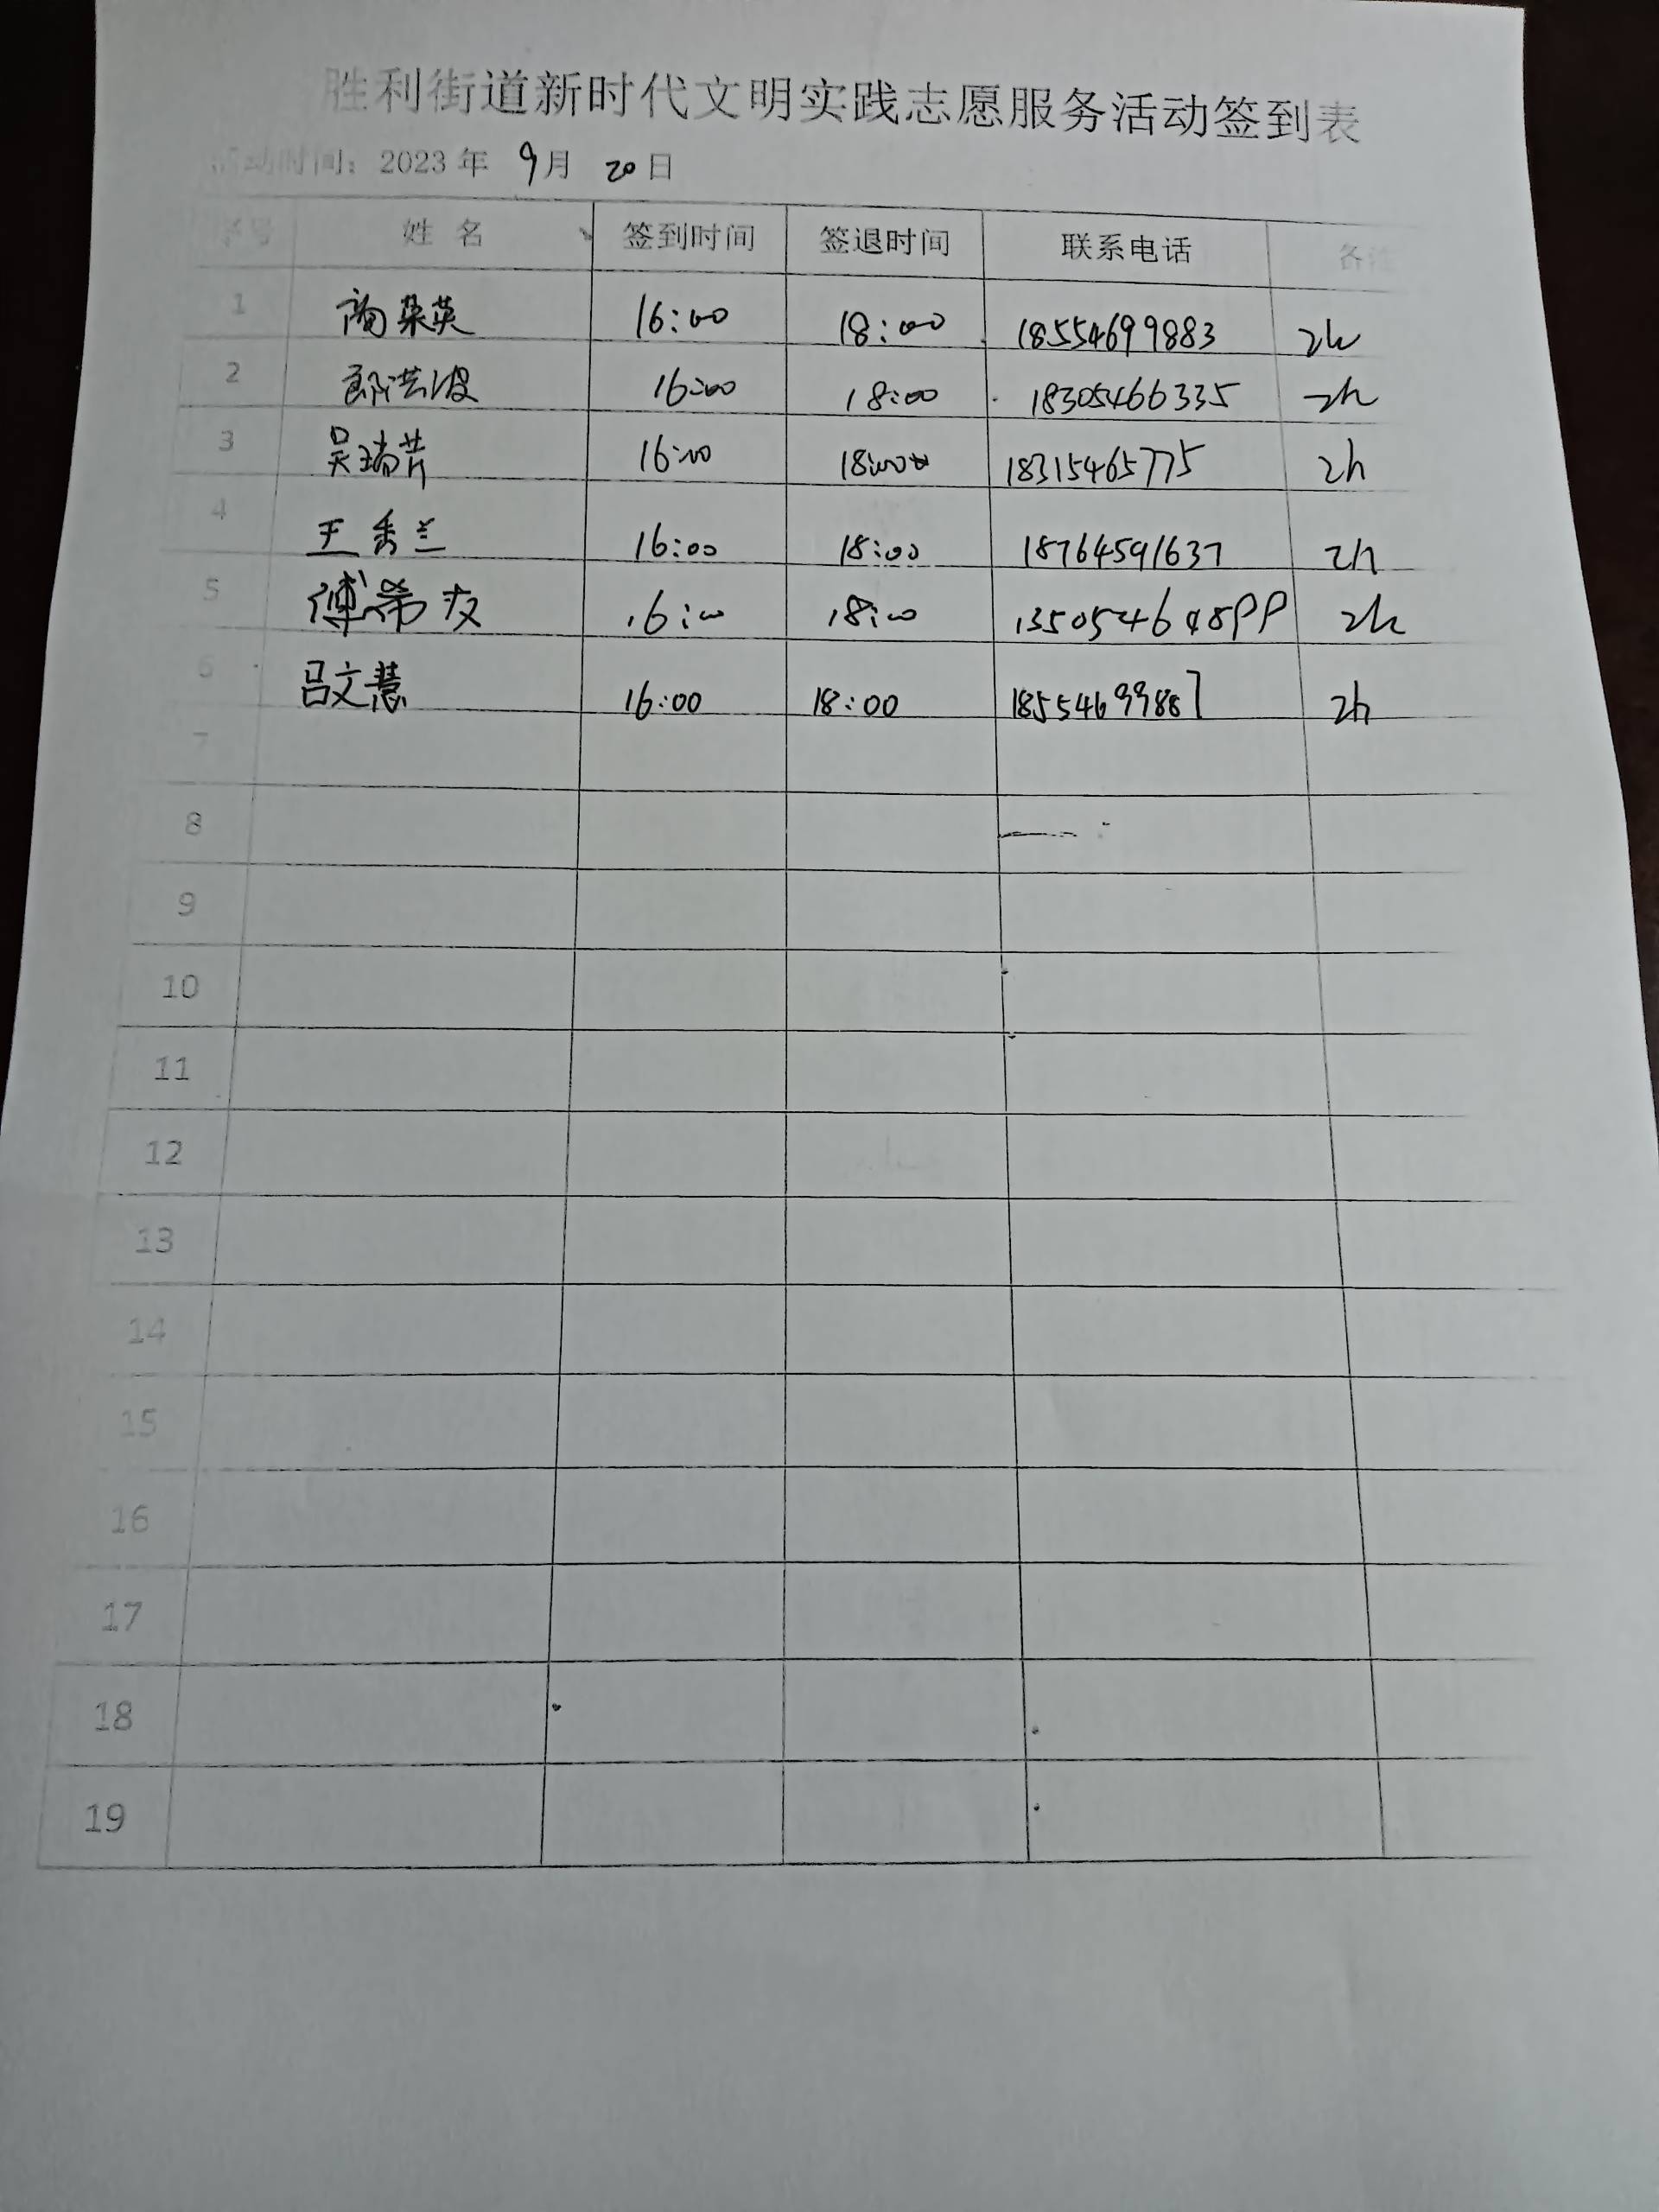 胜利街道新时代文明实践志愿服务活动签到表
活动时间：2023年 9月 20日
序号 姓名 签到时间 签退时间 联系电话 备注
1 16:00 18:00 18554699883 2h
2 郎洪波 16:00 18:00 18305466335 2h
3 吴瑞芹 16:00 18:00 18315465775 2h
4 王秀兰 16:00 18:00 18764591637 2h
5 傅希友 16:00 18:00 2h
6 吕文慧 16:00 18:00 18554699887 2h
7
8
9
10
11
12
13
14
15
16
17
18
19